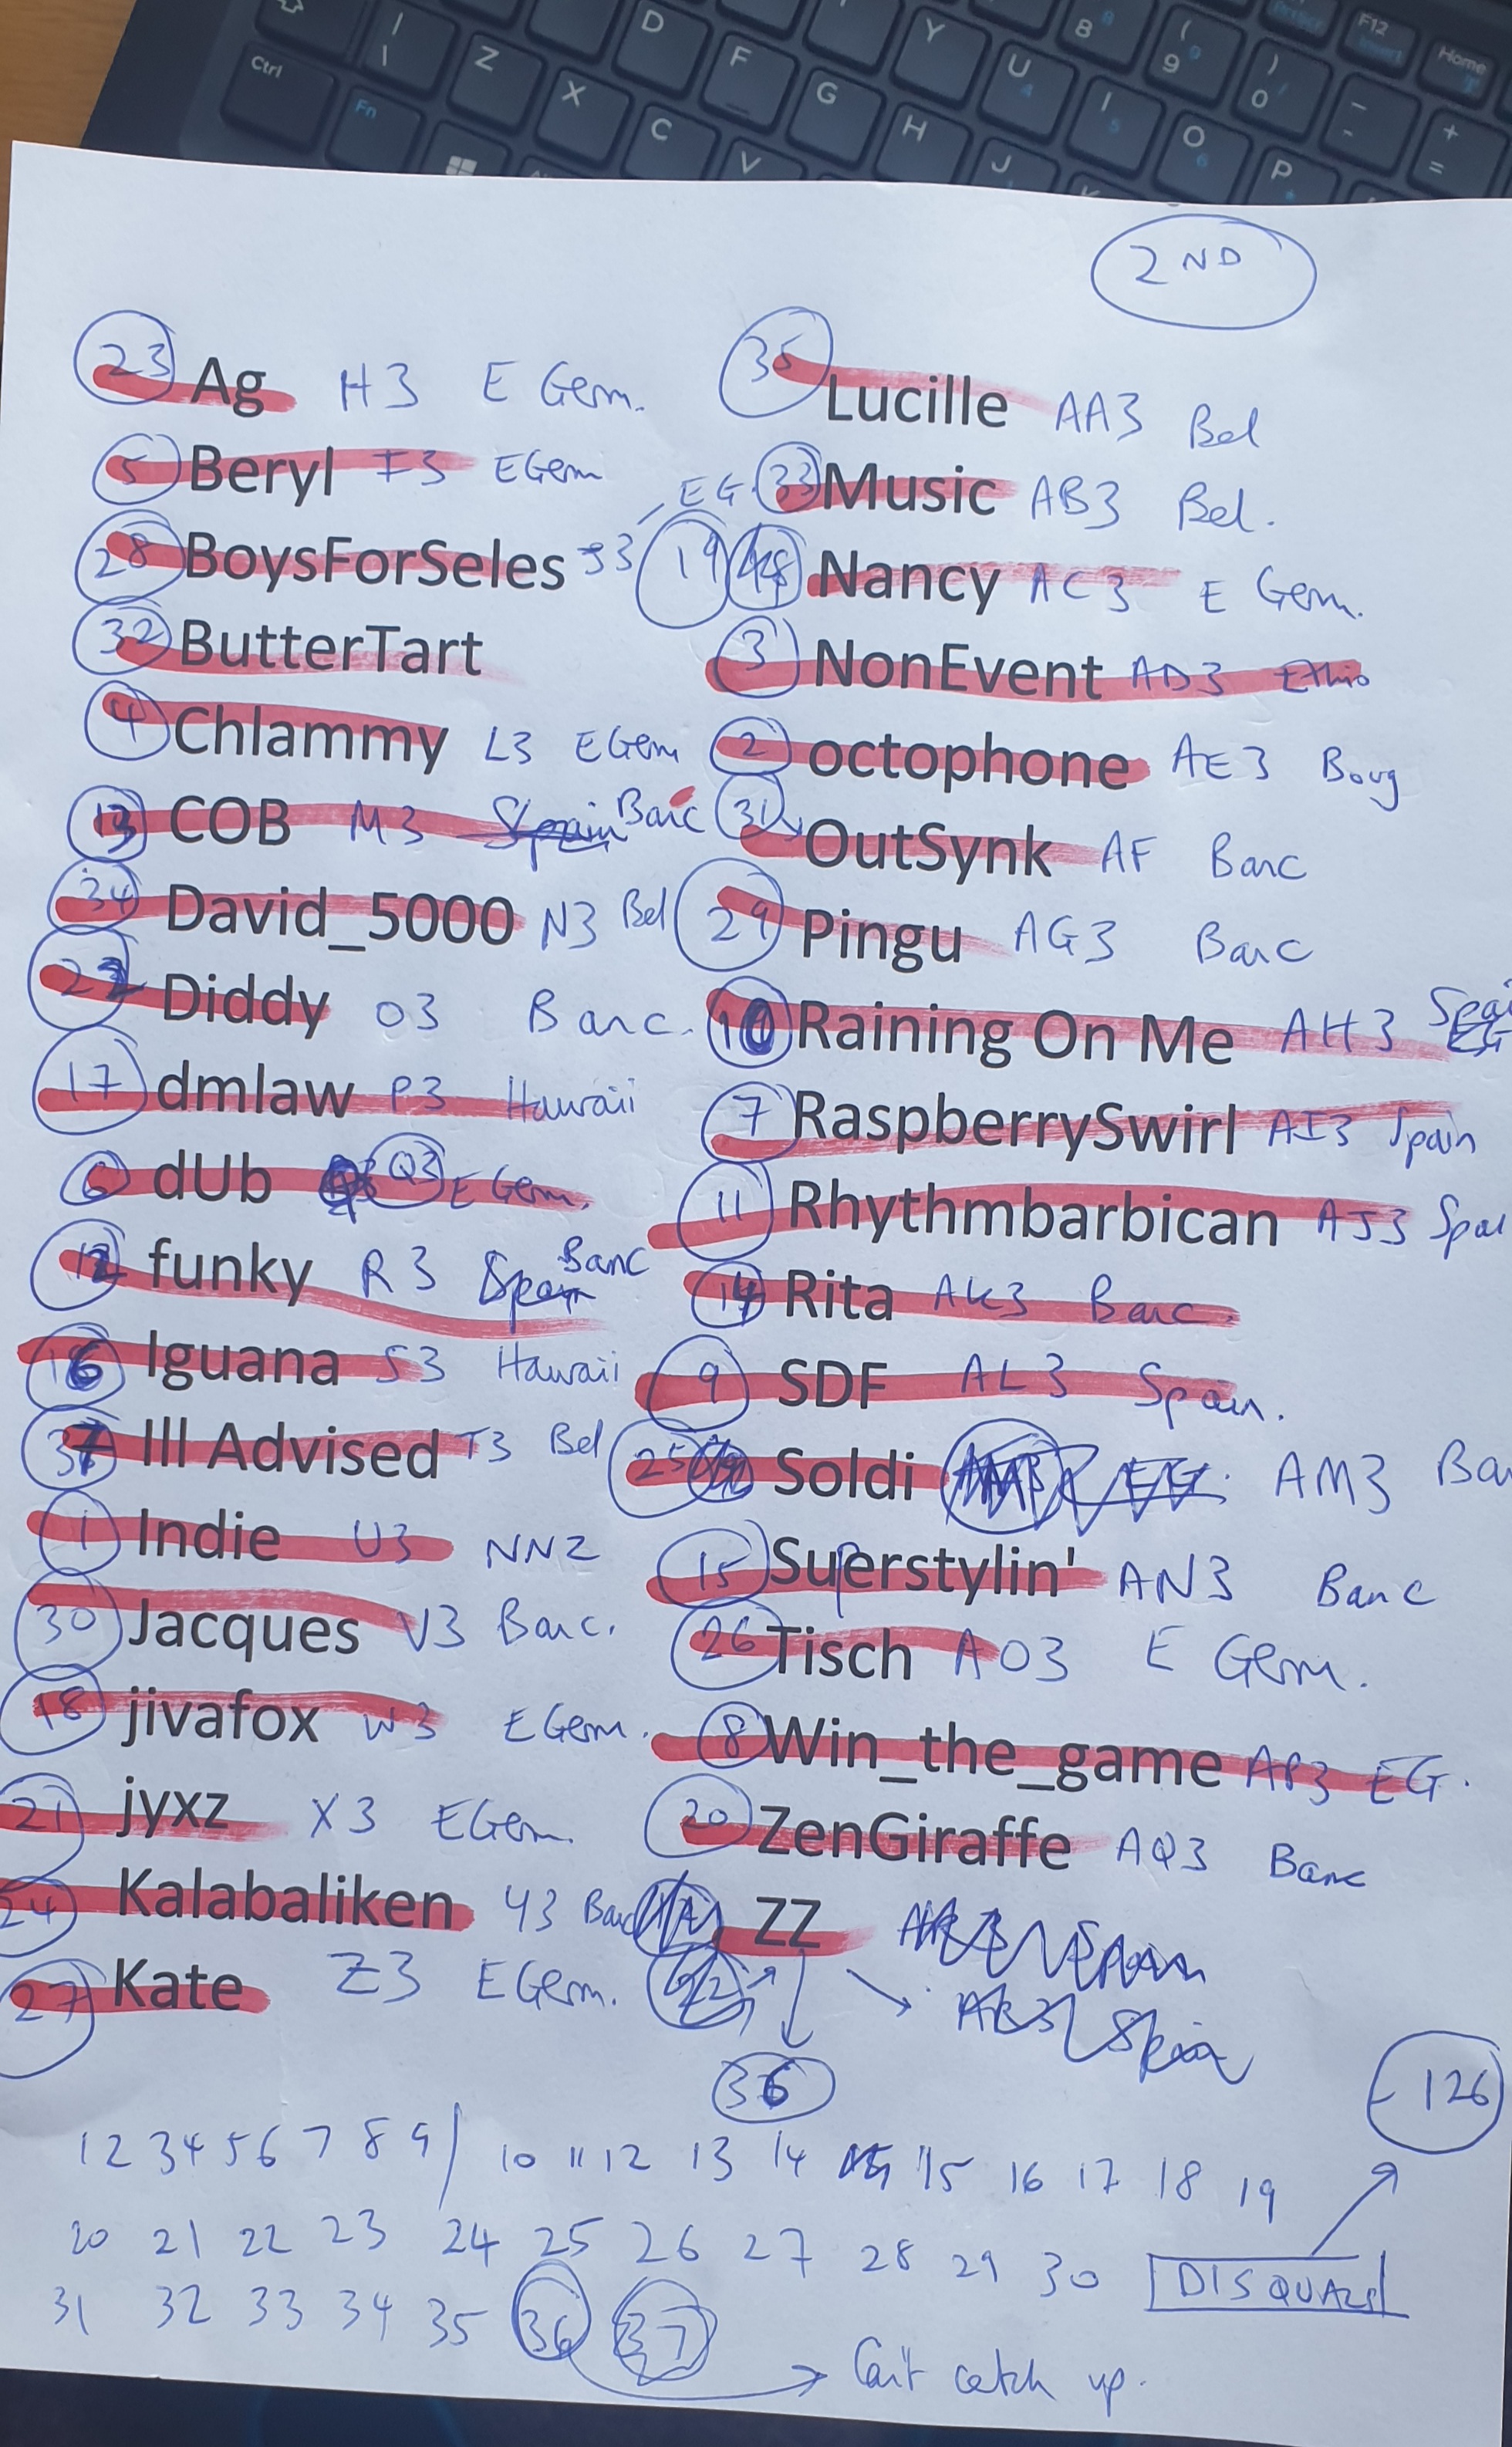 2ND
23 Ag H3 E Germ.
5 Beryl I3 EGerm
28 BoysForSeles J3 EG.
32 ButterTart
4 Chlammy L3 EGerm
13 COB M3 Spain Barc
34 David_5000 N3 Bel
22 Diddy O3 Barc.
17 dmlaw P3 Hawaii
6 dUb Q3 E Germ.
12 funky R3 Spain Barc
16 Iguana S3 Hawaii
37 Ill Advised T3 Bel
1 Indie U3 NNZ
30 Jacques V3 Barc.
18 jivafox W3 EGerm.
21 jyxz X3 EGerm.
24 Kalabaliken Y3 Barc
27 Kate Z3 EGerm.
35 Lucille AA3 Bel
33 Music AB3 Bel.
19 Nancy AC3 E Germ.
3 NonEvent AD3 Ethio
2 octophone AE3 Boug
31 OutSynk AF Barc
29 Pingu AG3 Barc
10 Raining On Me AH3 Spai EG
7 RaspberrySwirl AI3 Spain
11 Rhythmbarbican AJ3 Spai
14 Rita AK3 Barc.
9 SDF AL3 Spain.
25 Soldi AM3 Ba
15 Suerstylin' p AN3 Barc
26 Tisch AO3 E Germ.
8 Win_the_game AP3 EG.
20 ZenGiraffe AQ3 Barc
ZZ Spain
AR3 Spain
36
- 126
1 2 3 4 5 6 7 8 9 / 10 11 12 13 14 15 16 17 18 19
20 21 22 23 24 25 26 27 28 29 30 DISQUALS
31 32 33 34 35 36 37
Can't catch up.
Ctrl Fn Z X C V D F G H J Y U I O P 8 9 0 F12 Home